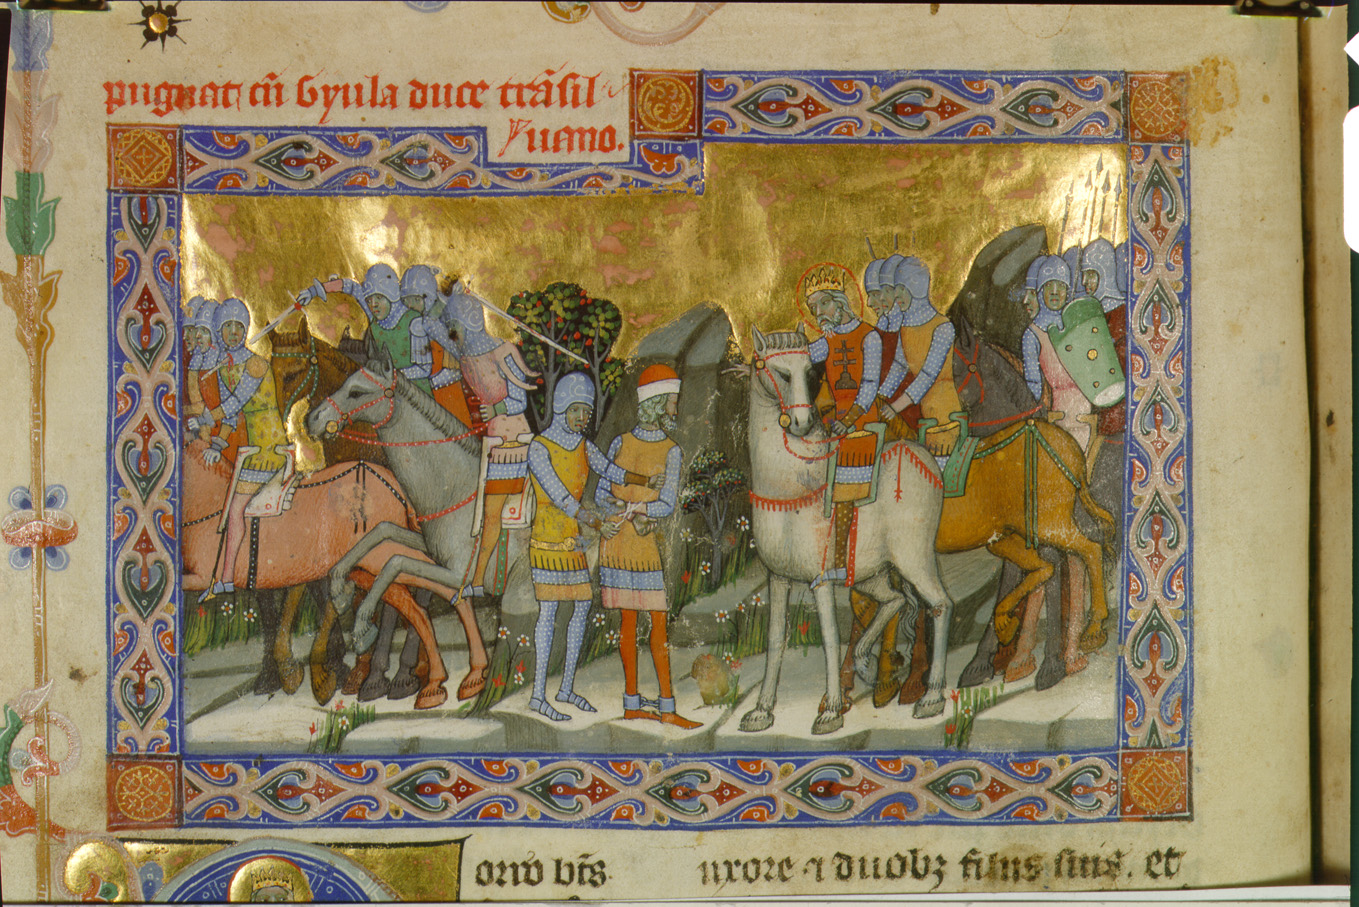 pugnat cū Gyula duce trāsil
uano.
orro bt̄s
uxore ⁊ duobꝫ filiis suis. et